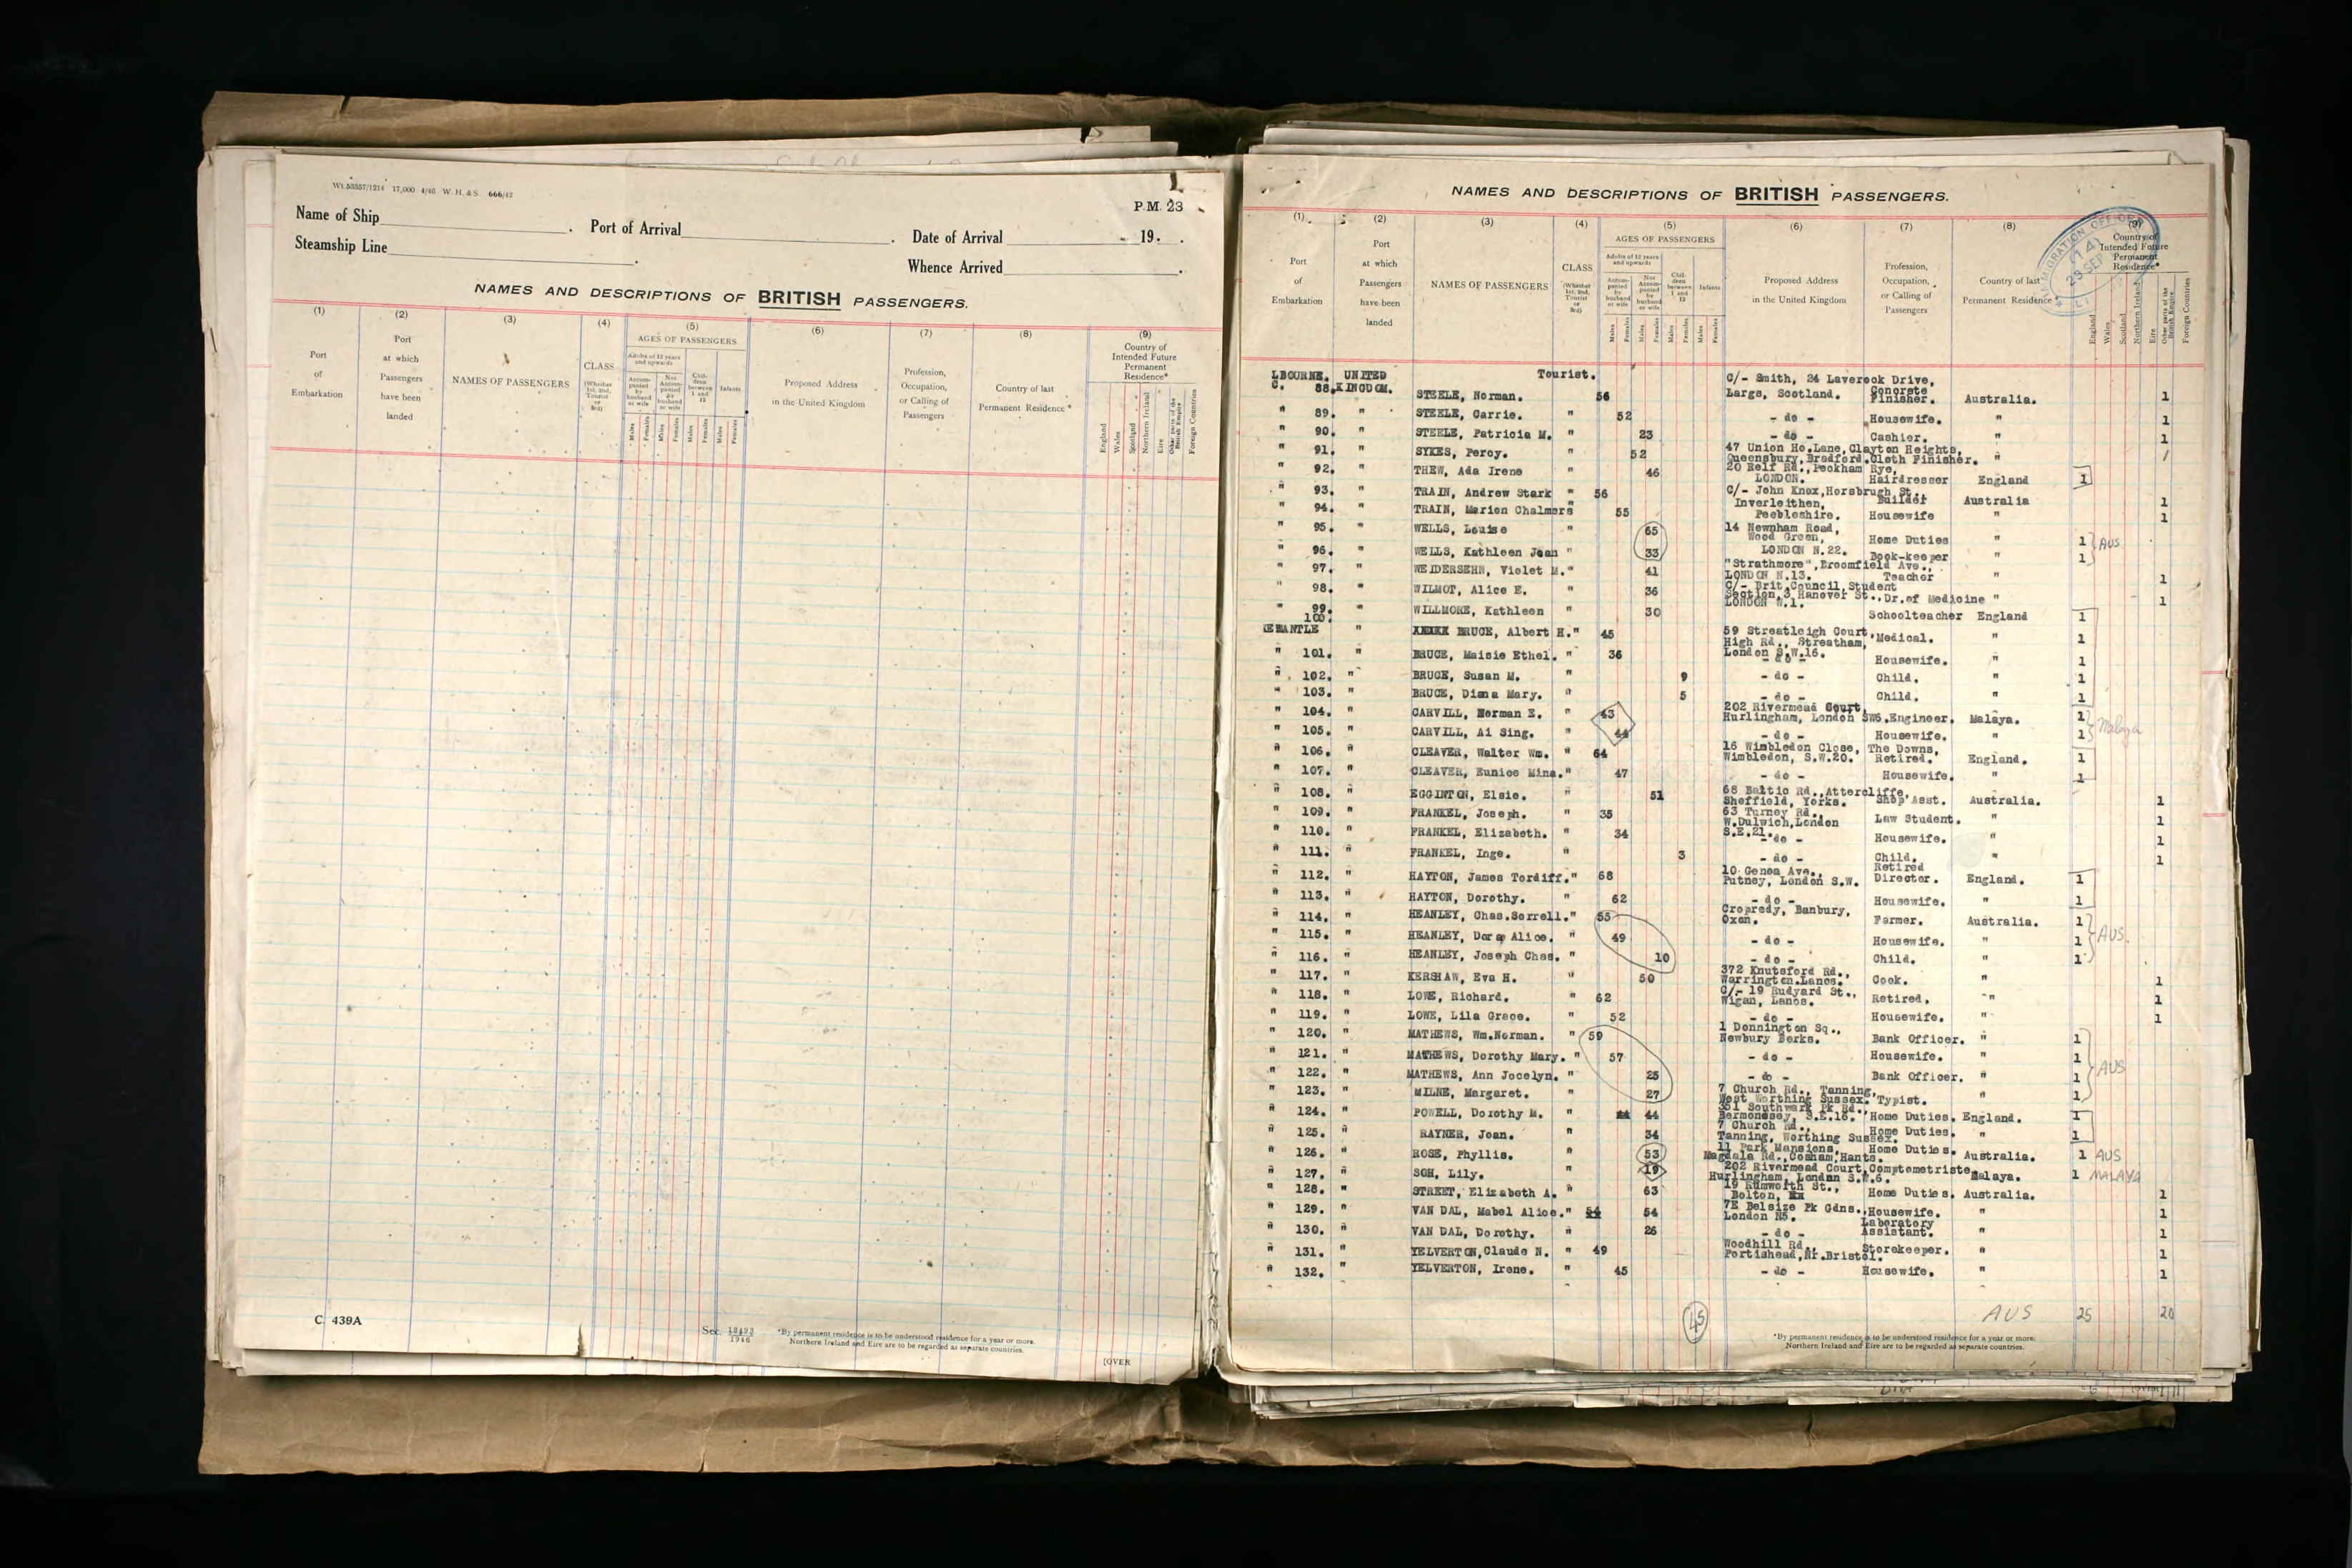 Wt.55557/1214 17,000 4/46 W. H. & S. 666/43
P.M. 23
Name of Ship . Port of Arrival . Date of Arrival 19 .
Steamship Line . Whence Arrived .
NAMES AND DESCRIPTIONS OF BRITISH PASSENGERS.
(1) (2) (3) (4) (5) (6) (7) (8) (9)
Port of Embarkation
Port at which Passengers have been landed
NAMES OF PASSENGERS
CLASS (Whether 1st, 2nd, Tourist or 3rd)
AGES OF PASSENGERS
Adults of 12 years and upwards
Accompanied by husband or wife
Not Accompanied by husband or wife
Children between 1 and 12
Infants
Males Females Males Females Males Females Males Females
Proposed Address in the United Kingdom
Profession, Occupation, or Calling of Passengers
Country of last Permanent Residence *
Country of Intended Future Permanent Residence*
England Wales Scotland Northern Ireland Eire Other parts of the British Empire Foreign Countries
C 439A
Sec. 1946
*By permanent residence is to be understood residence for a year or more.
Northern Ireland and Eire are to be regarded as separate countries.
[OVER
NAMES AND DESCRIPTIONS OF BRITISH PASSENGERS.
(1) (2) (3) (4) (5) (6) (7) (8) (9)
Port of Embarkation
Port at which Passengers have been landed
NAMES OF PASSENGERS
CLASS (Whether 1st, 2nd, Tourist or 3rd)
AGES OF PASSENGERS
Adults of 12 years and upwards
Accompanied by husband or wife
Not Accompanied by husband or wife
Children between 1 and 12
Infants
Males Females Males Females Males Females Males Females
Proposed Address in the United Kingdom
Profession, Occupation, or Calling of Passengers
Country of last Permanent Residence *
Country of Intended Future Permanent Residence*
England Wales Scotland Northern Ireland Eire Other parts of the British Empire Foreign Countries
LBOURNE. UNITED Tourist. C/- Smith, 24 Laverock Drive,
C. 88. KINGDOM. STEELE, Norman. 56 Largs, Scotland. Concrete Finisher. Australia. 1
" 89. " STEELE, Carrie. " 52 - do - Housewife. " 1
" 90. " STEELE, Patricia M. " 23 - do - Cashier. " 1
" 91. " SYKES, Percy. " 52 47 Union Ho.Lane, Clayton Heights, Queensbury, Bradford. Cloth Finisher. " 1
" 92. " THEW, Ada Irene " 46 20 Relf Rd., Peckham Rye, LONDON. Hairdresser England 1
" 93. " TRAIN, Andrew Stark " 56 C/- John Knox, Horsbrugh St., Inverleithen, Builder Australia 1
" 94. " TRAIN, Marion Chalmers " 55 Peebleshire. Housewife " 1
" 95. " WELLS, Louise " 65 14 Newnham Road, Wood Green, Home Duties " 1 } AUS
" 96. " WELLS, Kathleen Joan " 33 LONDON N.22. Book-keeper " 1
" 97. " WEIDERSEHN, Violet M. " 41 "Strathmore", Broomfield Ave., LONDON N.13. Teacher " 1
" 98. " WILMOT, Alice E. " 36 C/- Brit.Council, Student Section, 3 Hanover St., Dr.of Medicine " 1
" 99. " WILLMORE, Kathleen " 30 LONDON W.1. Schoolteacher England 1
100.
EMANTLE " BRUCE, Albert H. " 45 59 Streatleigh Court, High Rd., Streatham, Medical. " 1
" 101. " BRUCE, Maisie Ethel. " 36 London S.W.16. - do - Housewife. " 1
" 102. " BRUCE, Susan M. " 9 - do - Child. " 1
" 103. " BRUCE, Diana Mary. " 5 - do - Child. " 1
" 104. " CARVILL, Norman E. " 43 202 Rivermead Court, Hurlingham, London SW6. Engineer. Malaya. 1 } Malaya
" 105. " CARVILL, Ai Sing. " 44 - do - Housewife. " 1
" 106. " CLEAVER, Walter Wm. " 64 16 Wimbledon Close, The Downs, Wimbledon, S.W.20. Retired. England. 1
" 107. " CLEAVER, Eunice Mina. " 47 - do - Housewife. " 1
" 108. " EGGINTON, Elsie. " 51 68 Baltic Rd., Attercliffe, Sheffield, Yorks. Shop Asst. Australia. 1
" 109. " FRANKEL, Joseph. " 35 63 Turney Rd., W.Dulwich, London Law Student. " 1
" 110. " FRANKEL, Elizabeth. " 34 S.E.21. - do - Housewife. " 1
" 111. " FRANKEL, Inge. " 3 - do - Child. " 1
" 112. " HAYTON, James Tordiff. " 68 10 Genoa Ave., Putney, London S.W. Retired Director. England. 1
" 113. " HAYTON, Dorothy. " 62 - do - Housewife. " 1
" 114. " HEANLEY, Chas.Sorrell. " 55 Cropredy, Banbury, Oxon. Farmer. Australia. 1 } AUS.
" 115. " HEANLEY, Dora Alice. " 49 - do - Housewife. " 1
" 116. " HEANLEY, Joseph Chas. " 10 - do - Child. " 1
" 117. " KERSHAW, Eva H. " 50 372 Knutsford Rd., Warrington.Lancs. Cook. " 1
" 118. " LOWE, Richard. " 62 C/- 19 Rudyard St., Wigan, Lancs. Retired. " 1
" 119. " LOWE, Lila Grace. " 52 - do - Housewife. " 1
" 120. " MATHEWS, Wm.Norman. " 59 1 Donnington Sq., Newbury Berks. Bank Officer. " 1 } AUS
" 121. " MATHEWS, Dorothy Mary. " 57 - do - Housewife. " 1
" 122. " MATHEWS, Ann Jocelyn. " 25 - do - Bank Officer. " 1
" 123. " MILNE, Margaret. " 27 7 Church Rd., Tanning, West Worthing Sussex. Typist. " 1
" 124. " POWELL, Dorothy M. " 44 44 351 Southwark Pk Rd., Bermondsey, S.E.16. Home Duties. England. 1
" 125. " RAYNER, Joan. " 34 7 Church Rd., Tanning, Worthing Sussex. Home Duties. " 1
" 126. " ROSE, Phyllis. " 53 11 Park Mansions, Magdala Rd., Cosham, Hants. Home Duties. Australia. 1 AUS
" 127. " SOH, Lily. " 19 202 Rivermead Court, Hurlingham, London S.W.6. Comptometriste Malaya. 1 MALAYA
" 128. " STREET, Elizabeth A. " 63 19 Rumworth St., Bolton, Home Duties. Australia. 1
" 129. " VAN DAL, Mabel Alice. " 54 54 7E Belsize Pk Gdns., London N5. Housewife. " 1
" 130. " VAN DAL, Dorothy. " 26 - do - Laboratory Assistant. " 1
" 131. " YELVERTON, Claude N. " 49 Woodhill Rd., Portishead, Nr.Bristol. Storekeeper. " 1
" 132. " YELVERTON, Irene. " 45 - do - Housewife. " 1
45 AUS 25 20
*By permanent residence is to be understood residence for a year or more.
Northern Ireland and Eire are to be regarded as separate countries.